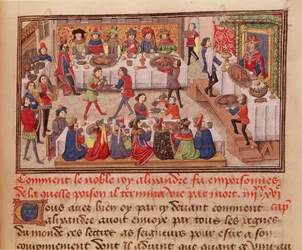 Comment le noble roy alixandre fu empoisonnes
de la quelle poison il termina due par mort. iiij.xx xv
Vous avez bien oy par cy devant comment
alixandre avoit envoie par tous les regnes
du monde ses lettres as seigneurs pour estre a son
couronnement dont il advint que avant ce